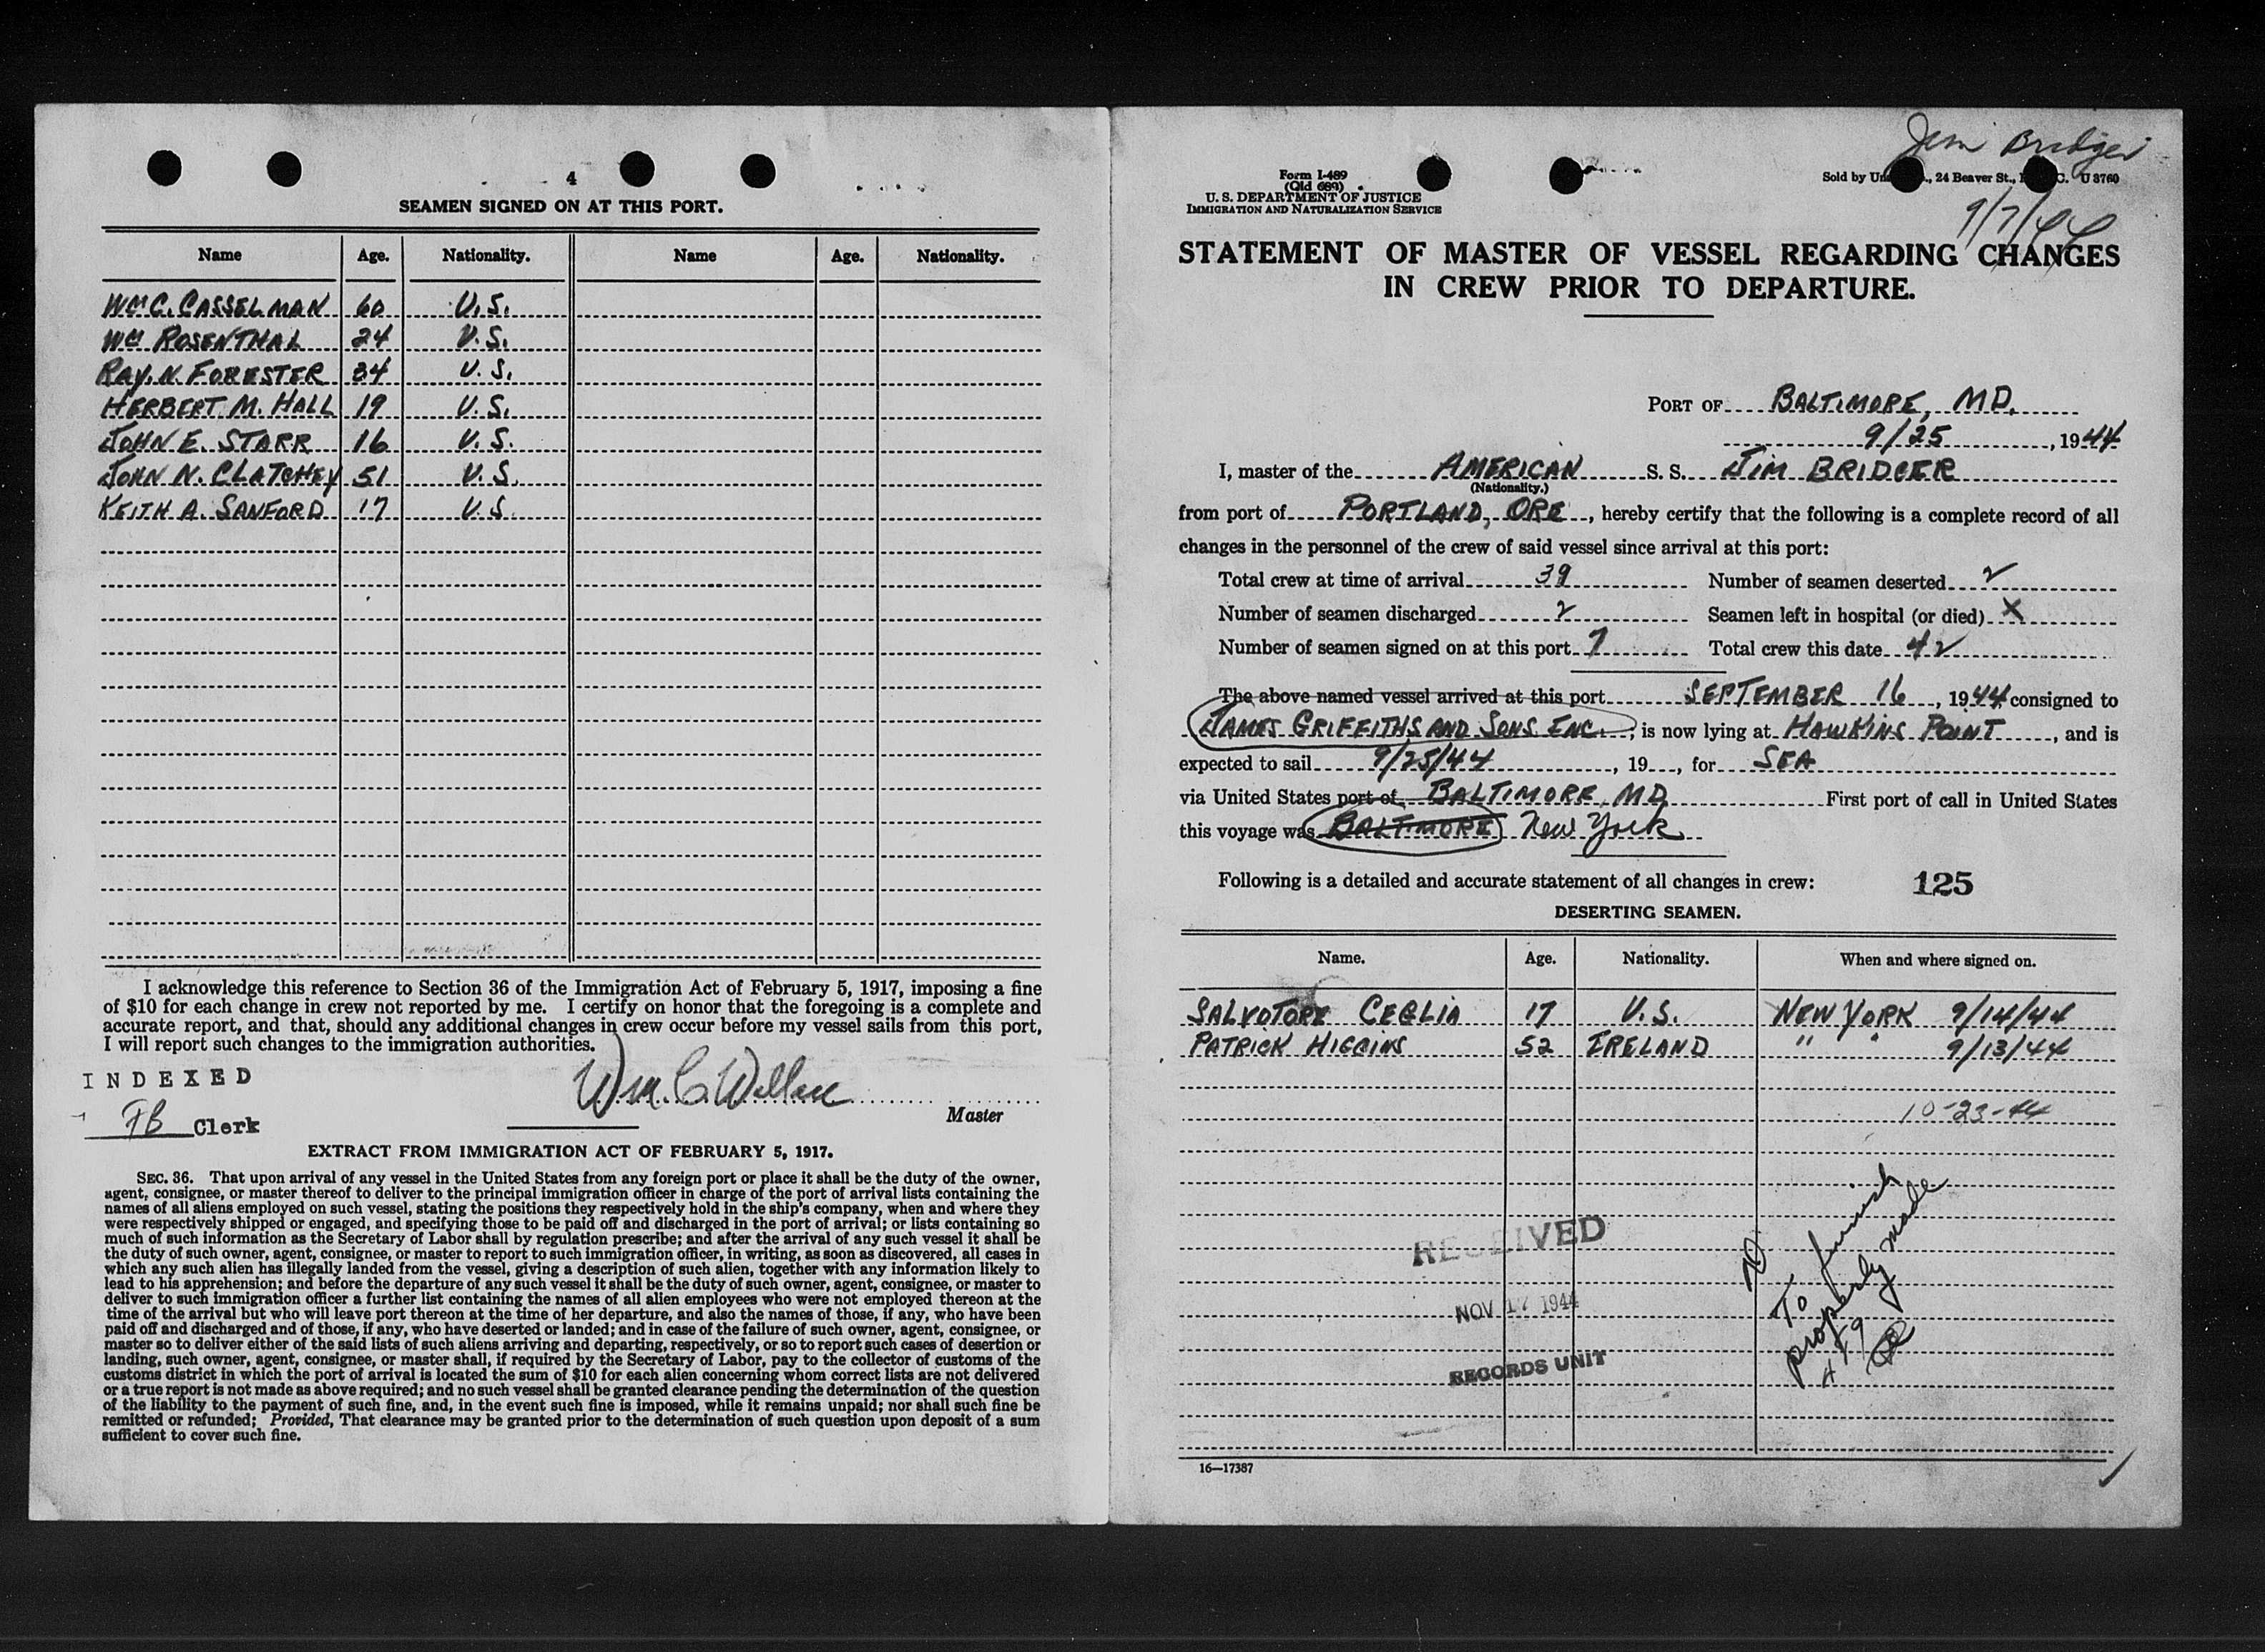 4
SEAMEN SIGNED ON AT THIS PORT.
Name Age. Nationality. Name Age. Nationality.
WM C. CASSELMAN 60 U.S.
WM ROSENTHAL 24 U.S.
RAY. N. FORESTER 34 U.S.
HERBERT M. HALL 19 U.S.
JOHN E. STARR 16 U.S.
JOHN N. CLATCHEY 51 U.S.
KEITH A. SANFORD 17 U.S.
I acknowledge this reference to Section 36 of the Immigration Act of February 5, 1917, imposing a fine
of $10 for each change in crew not reported by me. I certify on honor that the foregoing is a complete and
accurate report, and that, should any additional changes in crew occur before my vessel sails from this port,
I will report such changes to the immigration authorities.
INDEXED
Wm. C. 
Master
FB Clerk
EXTRACT FROM IMMIGRATION ACT OF FEBRUARY 5, 1917.
SEC. 36. That upon arrival of any vessel in the United States from any foreign port or place it shall be the duty of the owner,
agent, consignee, or master thereof to deliver to the principal immigration officer in charge of the port of arrival lists containing the
names of all aliens employed on such vessel, stating the positions they respectively hold in the ship's company, when and where they
were respectively shipped or engaged, and specifying those to be paid off and discharged in the port of arrival; or lists containing so
much of such information as the Secretary of Labor shall by regulation prescribe; and after the arrival of any such vessel it shall be
the duty of such owner, agent, consignee, or master to report to such immigration officer, in writing, as soon as discovered, all cases in
which any such alien has illegally landed from the vessel, giving a description of such alien, together with any information likely to
lead to his apprehension; and before the departure of any such vessel it shall be the duty of such owner, agent, consignee, or master to
deliver to such immigration officer a further list containing the names of all alien employees who were not employed thereon at the
time of the arrival but who will leave port thereon at the time of her departure, and also the names of those, if any, who have been
paid off and discharged and of those, if any, who have deserted or landed; and in case of the failure of such owner, agent, consignee, or
master so to deliver either of the said lists of such aliens arriving and departing, respectively, or so to report such cases of desertion or
landing, such owner, agent, consignee, or master shall, if required by the Secretary of Labor, pay to the collector of customs of the
customs district in which the port of arrival is located the sum of $10 for each alien concerning whom correct lists are not delivered
or a true report is not made as above required; and no such vessel shall be granted clearance pending the determination of the question
of the liability to the payment of such fine, and, in the event such fine is imposed, while it remains unpaid; nor shall such fine be
remitted or refunded; Provided, That clearance may be granted prior to the determination of such question upon deposit of a sum
sufficient to cover such fine.
Jim Bridger
Form I-489
(Old 689)
U. S. DEPARTMENT OF JUSTICE
IMMIGRATION AND NATURALIZATION SERVICE
Sold by , 24 Beaver St., C. U 3760
9/7/44
STATEMENT OF MASTER OF VESSEL REGARDING CHANGES
IN CREW PRIOR TO DEPARTURE.
PORT OF BALTIMORE, MD.
9/25, 1944
I, master of the AMERICAN S. S. JIM BRIDGER
(Nationality.)
from port of PORTLAND, ORE, hereby certify that the following is a complete record of all
changes in the personnel of the crew of said vessel since arrival at this port:
Total crew at time of arrival 39 Number of seamen deserted 2
Number of seamen discharged 2 Seamen left in hospital (or died) X
Number of seamen signed on at this port 7 Total crew this date 42
The above named vessel arrived at this port SEPTEMBER 16, 1944 consigned to
JAMES GRIFFITHS AND SONS INC., is now lying at HAWKINS POINT, and is
expected to sail 9/25/44, 19, for SEA
via United States port of BALTIMORE, MD First port of call in United States
this voyage was BALTIMORE New York
Following is a detailed and accurate statement of all changes in crew: 125
DESERTING SEAMEN.
Name. Age. Nationality. When and where signed on.
SALVOTORE CEGLIA 17 U.S. NEW YORK 9/14/44
PATRICK HIGGINS 52 IRELAND " " 9/13/44
10-23-44
To furnish
properly made
RECEIVED
NOV 17 1944
RECORDS UNIT
16—17387